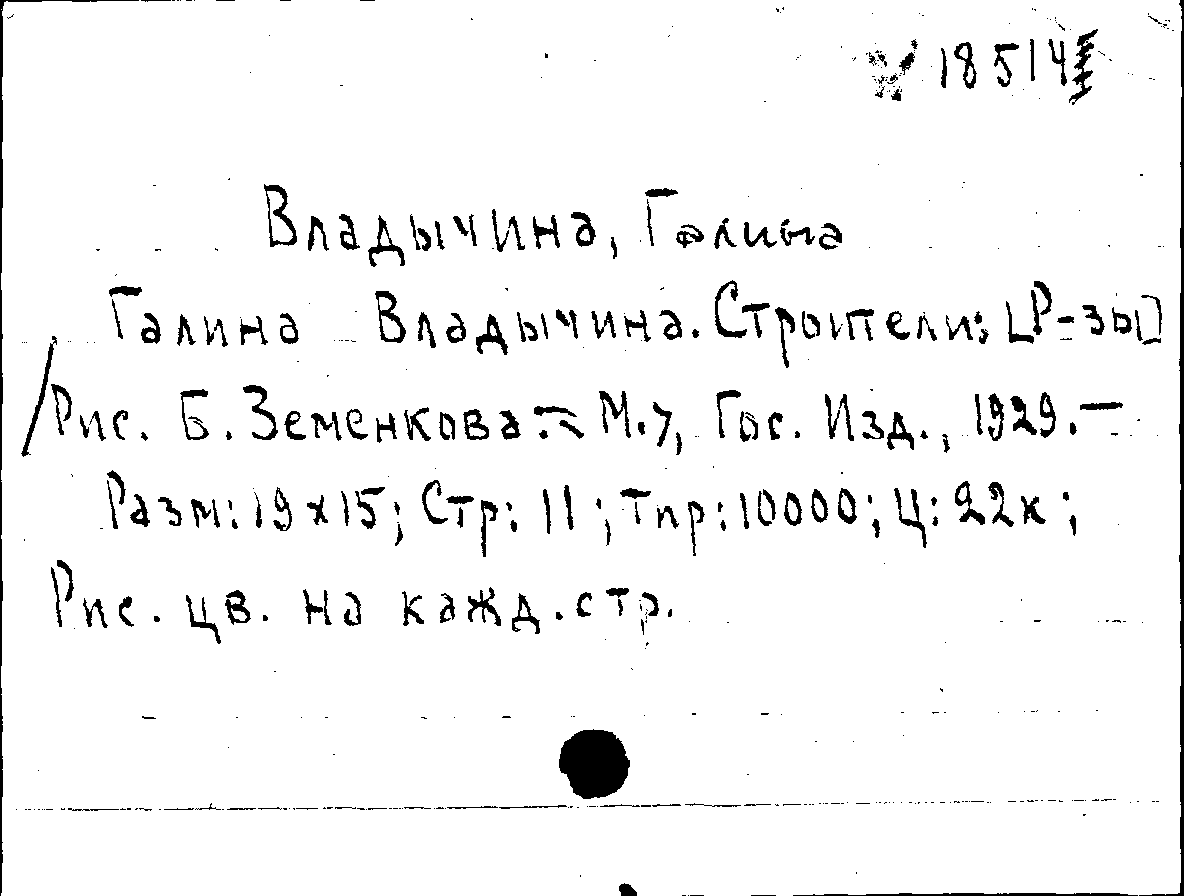 18514
Владычина, Галина
Галина Владычина. Строители: [Р-зы]
/Рис. Б. Земенкова. – М.;, Гос. Изд., 1929. –
Разм: 19x15; Стр: 11; Тпр: 10000; Ц: 22к;
Рис. цв. на кажд. стр.